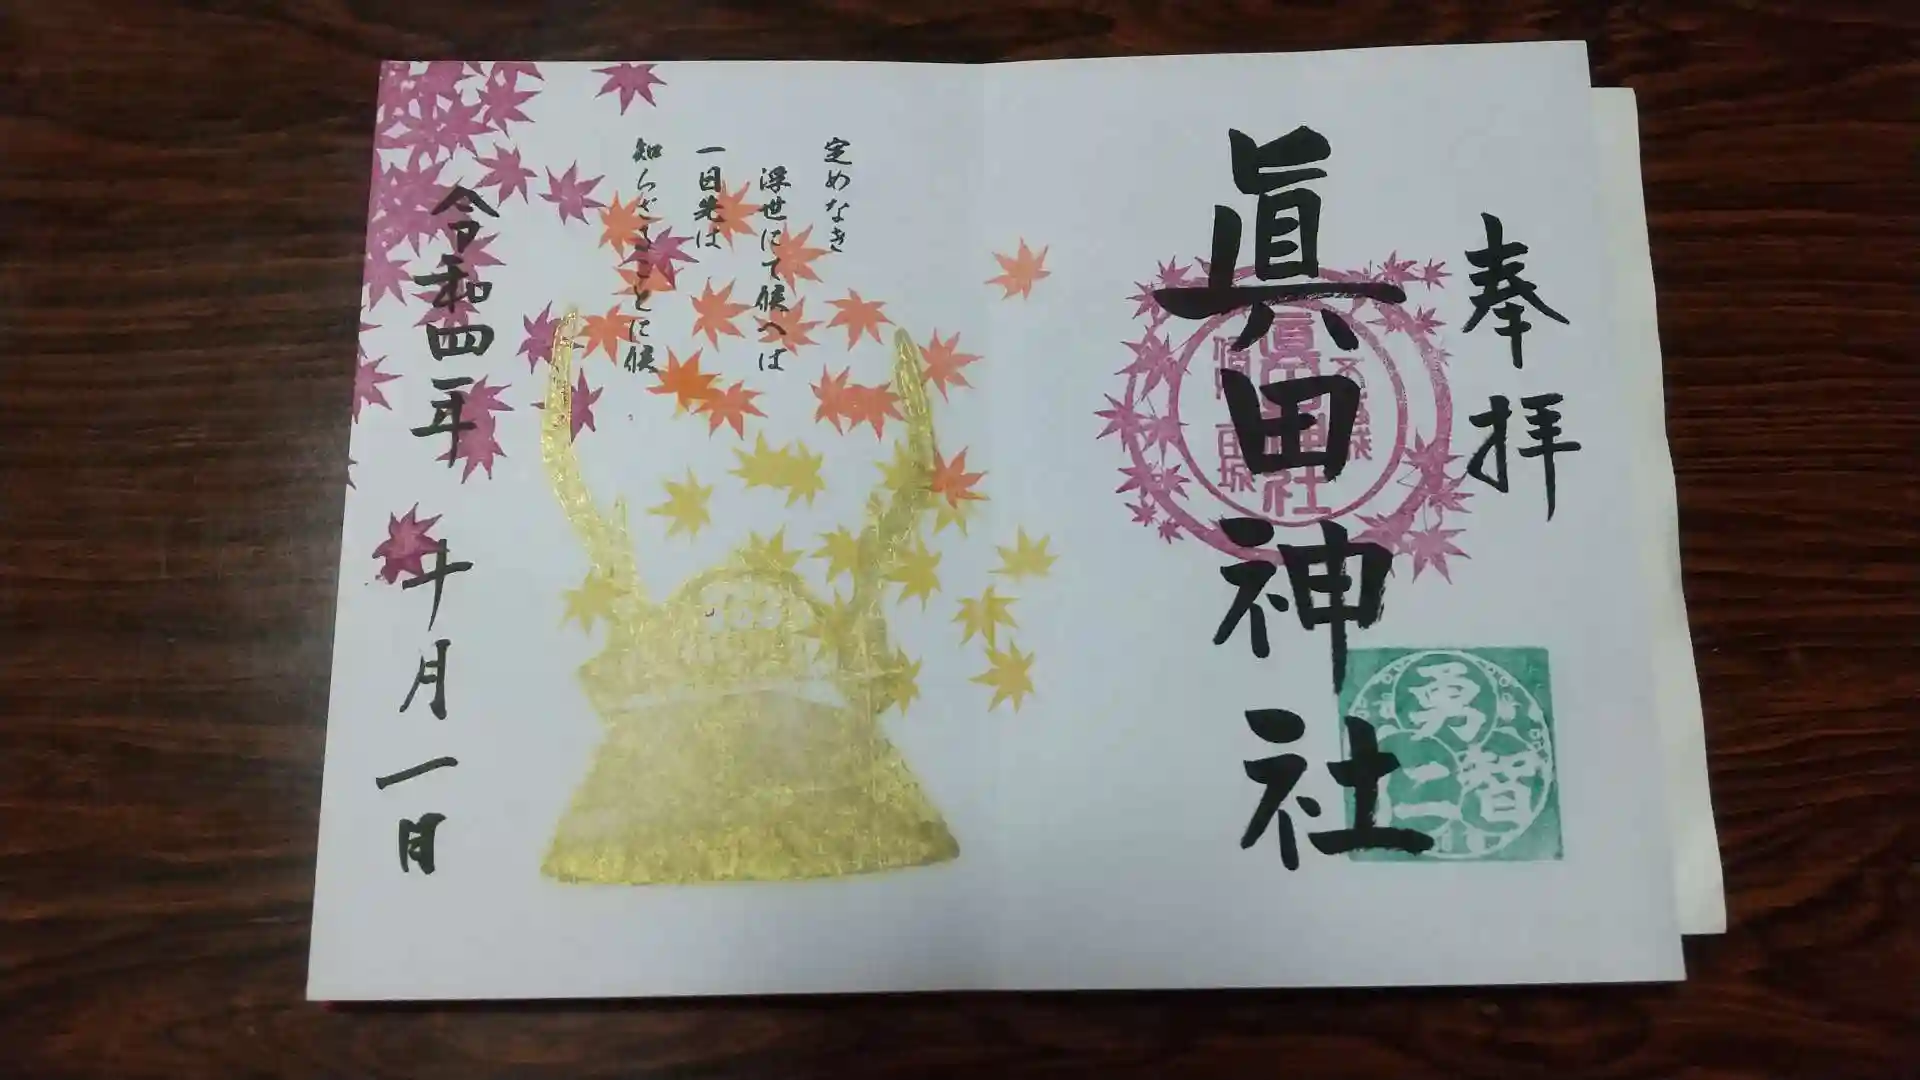 奉拝
眞田神社
眞田神社
勇
智
仁
定めなき
浮世にて候へば
一日先は
知らざることに候
令和四年
十月一日